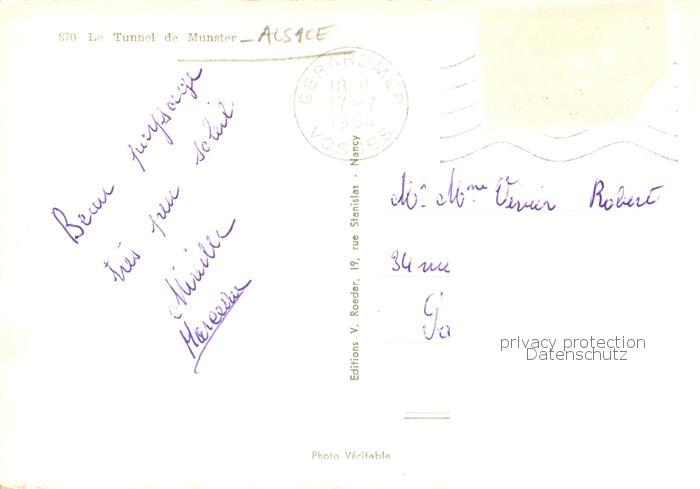 870 Le Tunnel de Munster - ALSACE
GERARDMER
18 H
17-7
1954
VOSGES
Beau paysage
très peu soleil
Mireille
Marcelle
Editions V. Roeder, 19, rue Stanislas - Nancy
Mr. Mme Vivier Robert
34 rue
privacy protection
Datenschutz
Photo Véritable